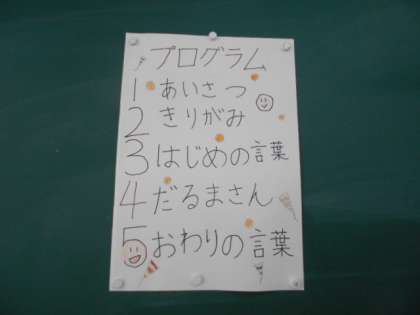 プログラム
1 あいさつ
2 きりがみ
3 はじめの言葉
4 だるまさん
5 おわりの言葉